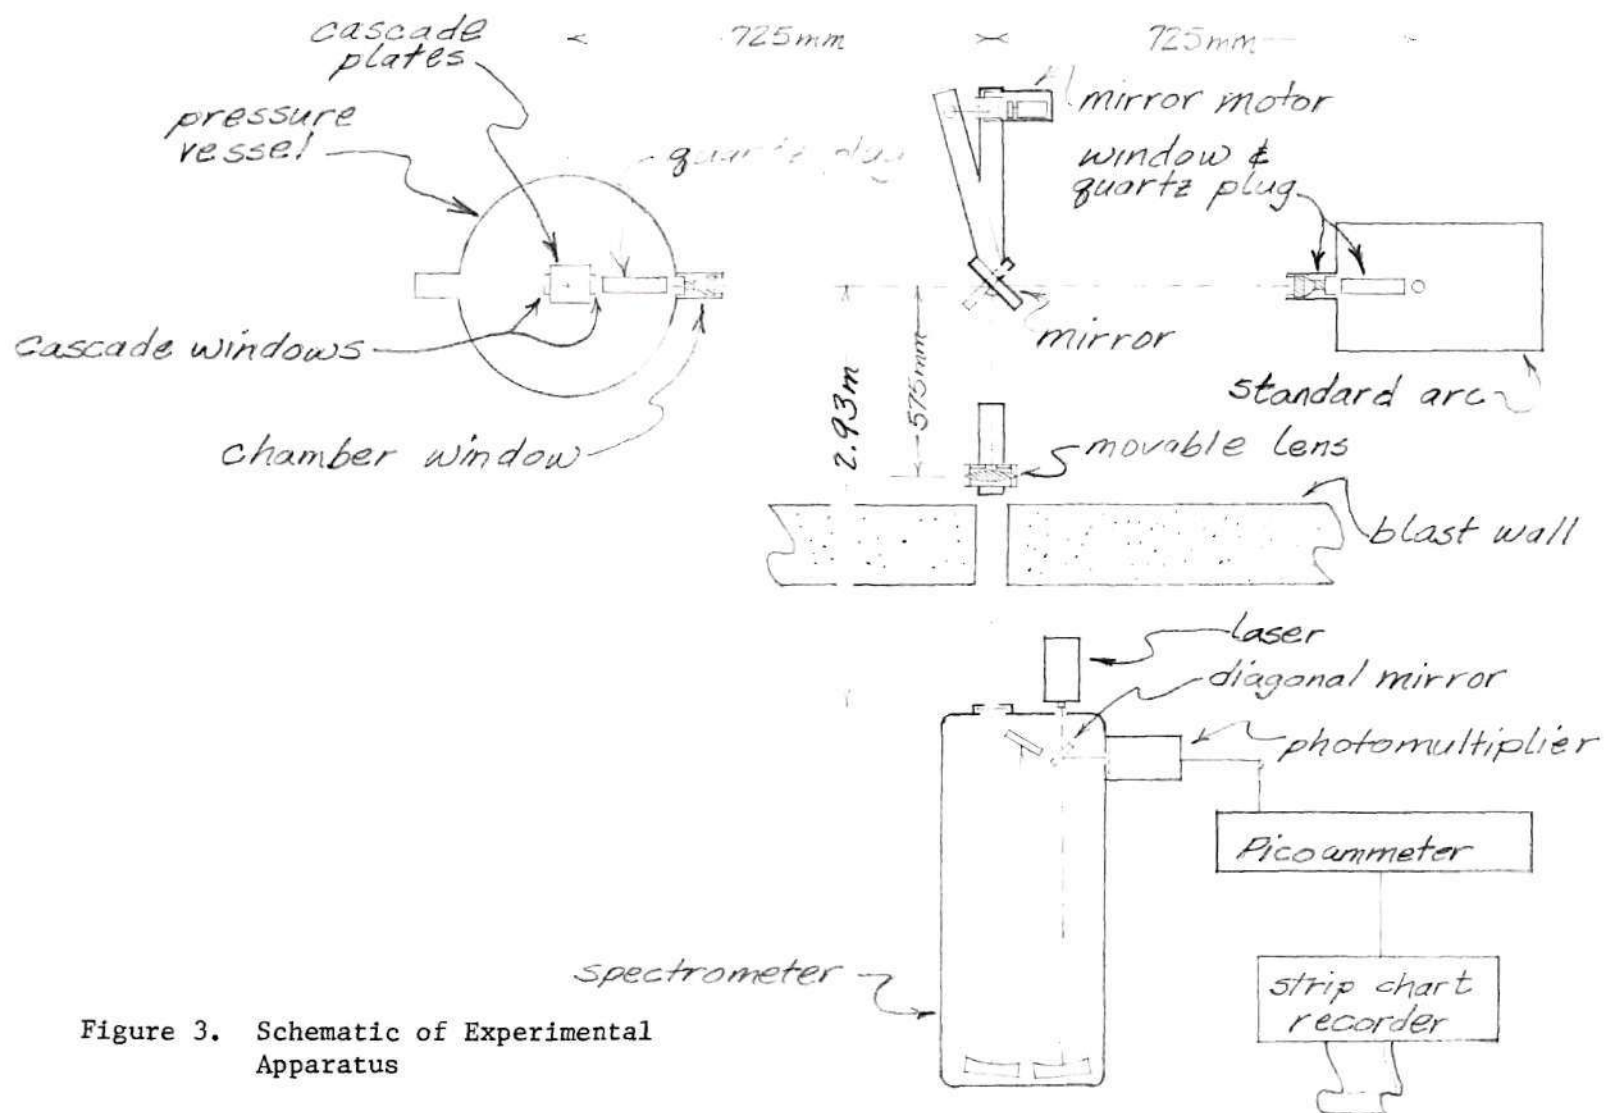 cascade
plates
725mm
725mm
pressure
vessel
quartz plug
mirror motor
window &
quartz plug
cascade windows
mirror
standard arc
chamber window
2.93m
575mm
movable lens
blast wall
laser
diagonal mirror
photomultiplier
Picoammeter
spectrometer
strip chart
recorder
Figure 3. Schematic of Experimental
Apparatus